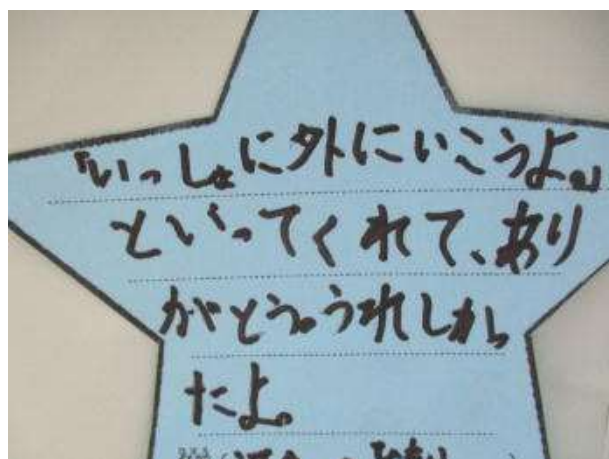 「いっしょに外にいこうよ。」
といってくれて、あり
がとう。うれしかっ
たよ。